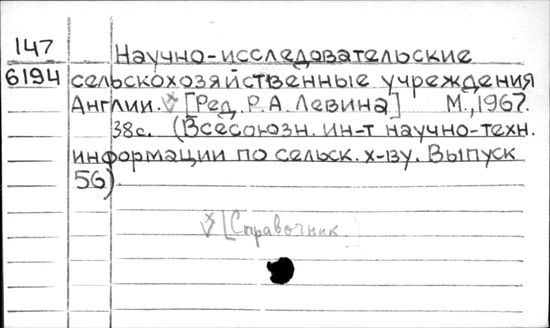 147
Научно-исследовательские
6194 сельскохозяйственные учреждения
Англии. [Ред. Р.А. Левина] М., 1967.
38с. (Всесоюзн. ин-т научно-техн.
информации по сельск. х-ву. Выпуск
56)
[Справочник